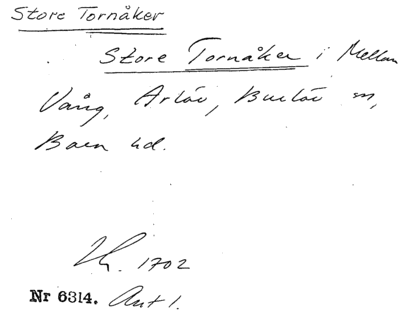 Store Tornåker
Store Tornåker i Mellan
Vång, Arlöv, Burlöv sn,
Bara hd.
Lh. 1702
Nr 6314. Avt 1.